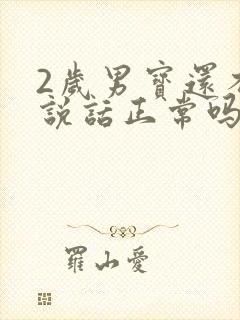 2歲男寶還不
說話正常嗎
羅山愛